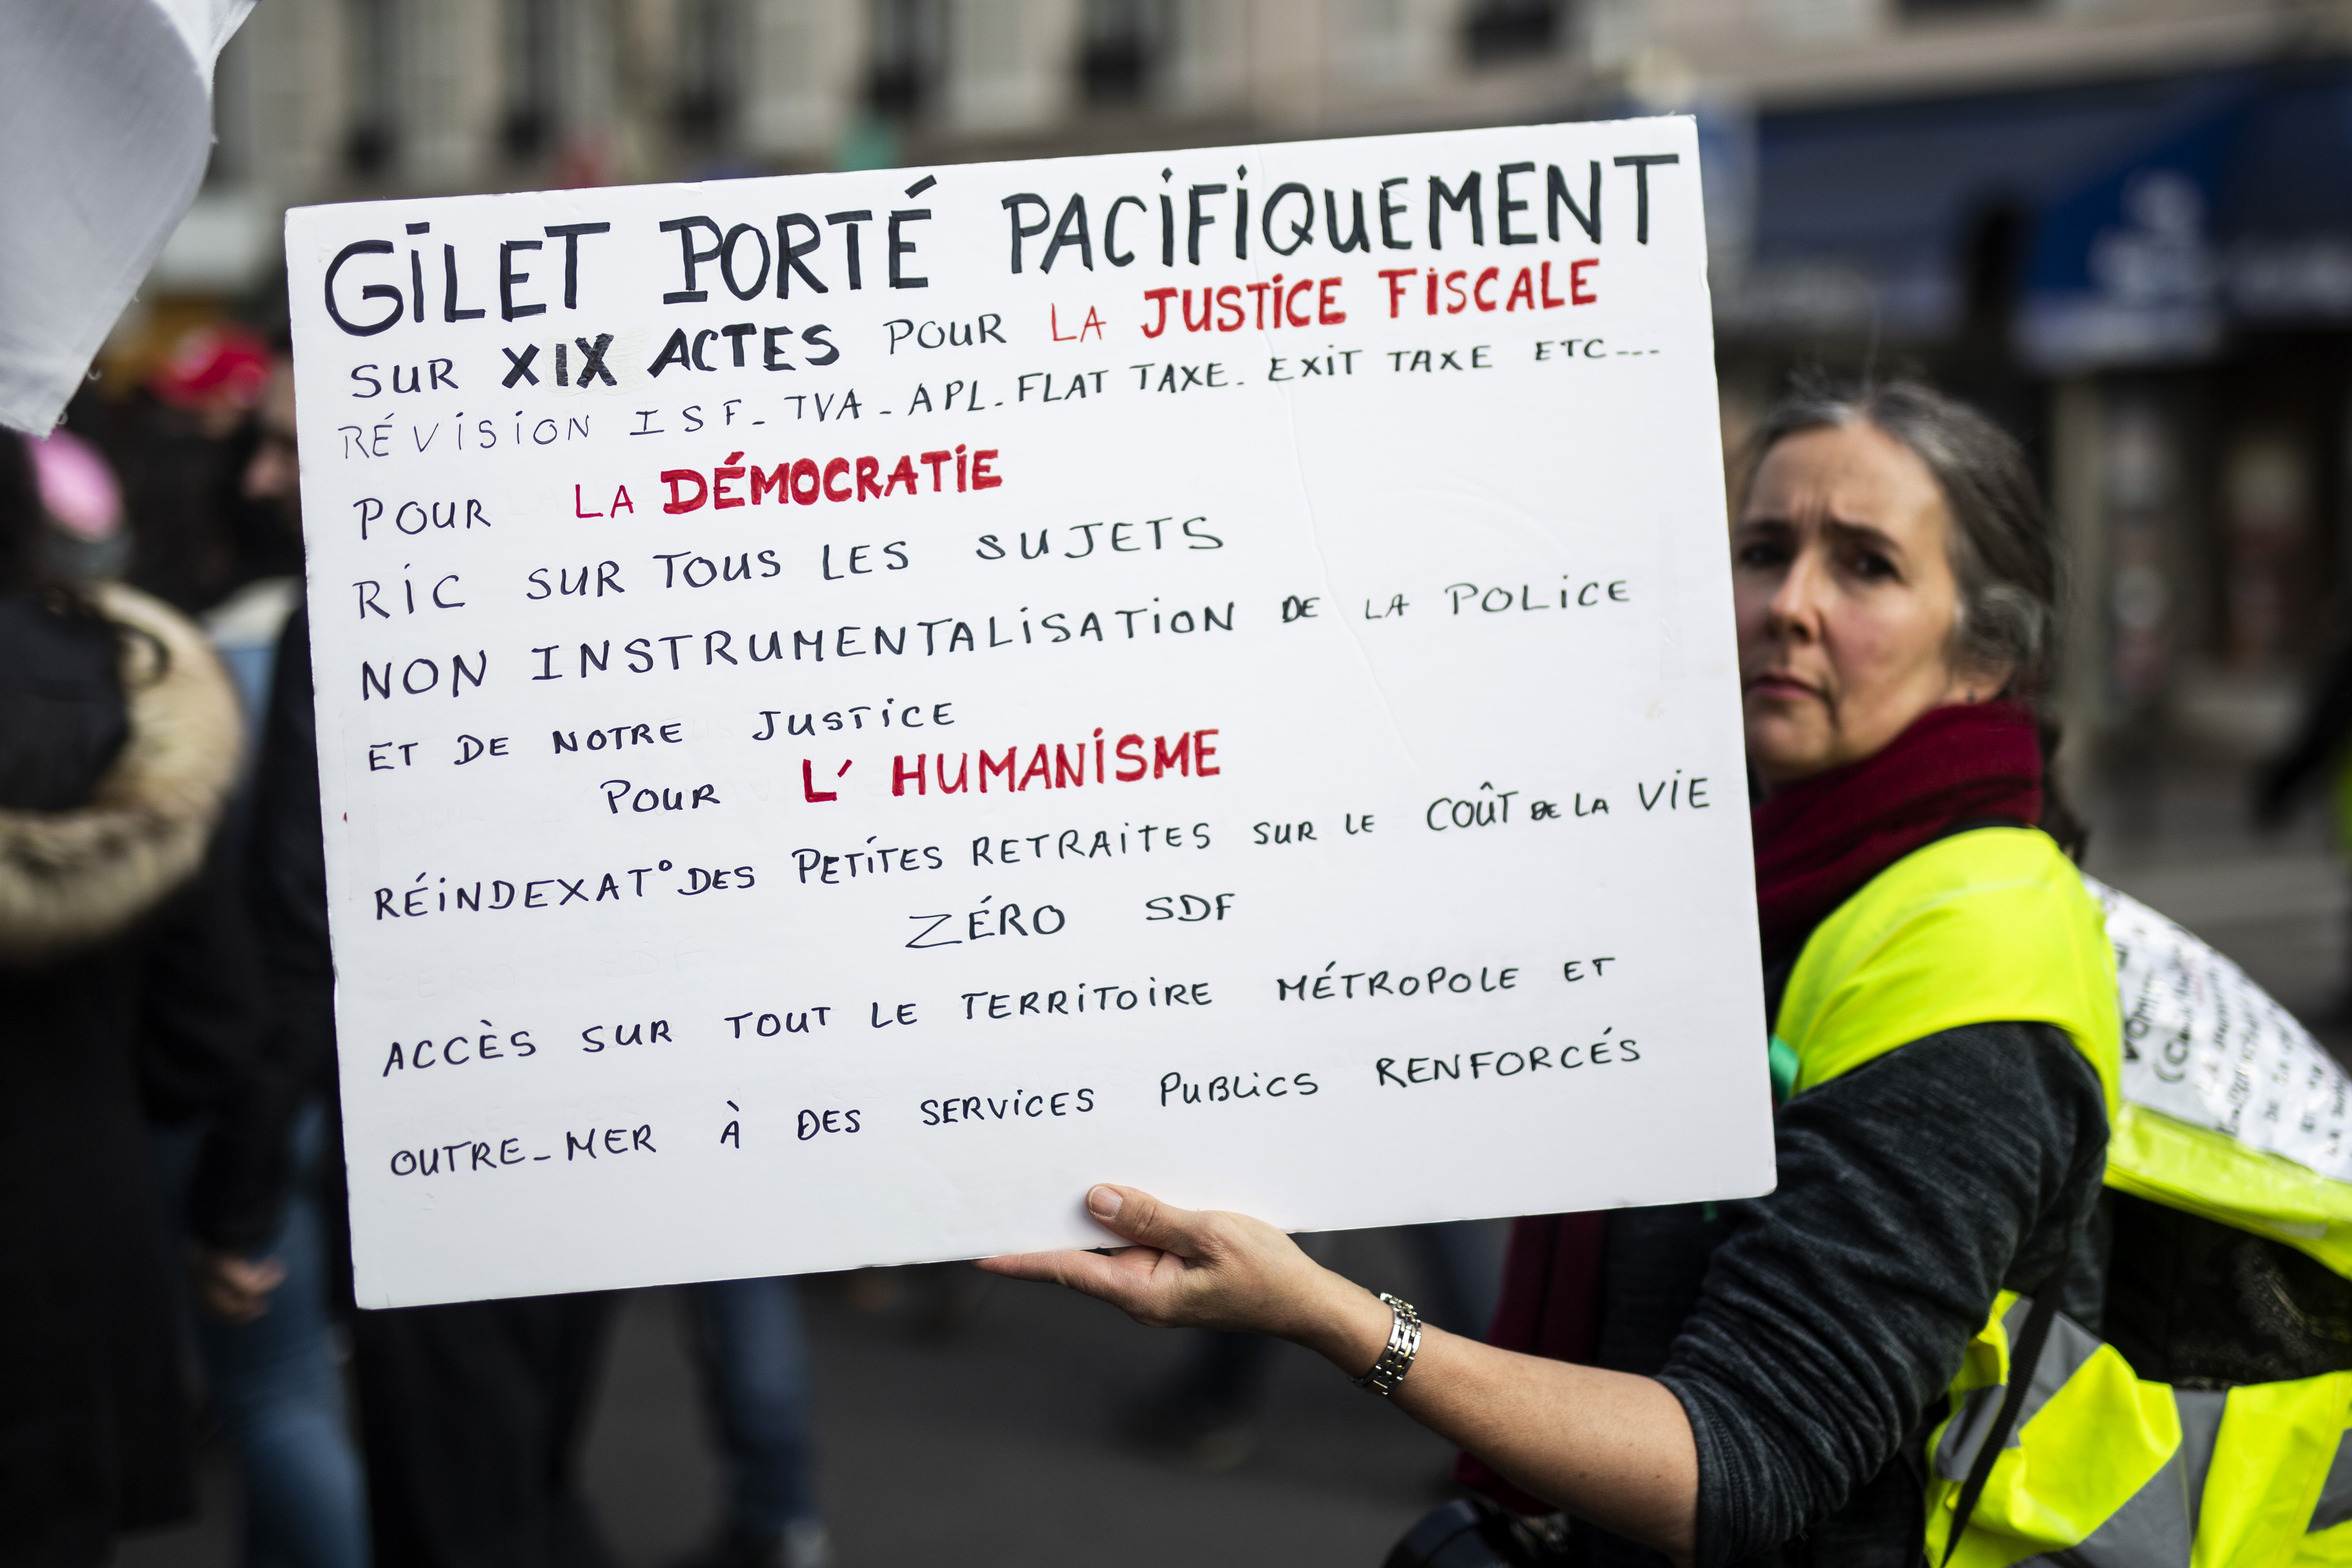 GILET PORTÉ PACIFIQUEMENT
SUR XIX ACTES POUR LA JUSTICE FISCALE
RÉVISION ISF_ TVA_ APL. FLAT TAXE. EXIT TAXE ETC---
POUR LA DÉMOCRATIE
RIC SUR TOUS LES SUJETS
NON INSTRUMENTALISATION DE LA POLICE
ET DE NOTRE JUSTICE
POUR L'HUMANISME
RÉINDEXAT° DES PETITES RETRAITES SUR LE COÛT DE LA VIE
ZÉRO SDF
ACCÈS SUR TOUT LE TERRITOIRE MÉTROPOLE ET
OUTRE_MER À DES SERVICES PUBLICS RENFORCÉS